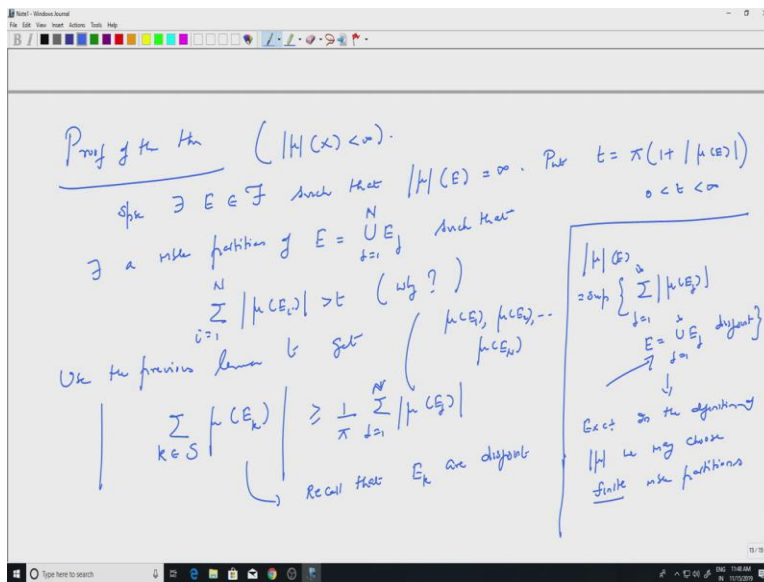 Note1 - Windows Journal
File Edit View Insert Actions Tools Help
B I
Proof of the thm (|μ|(X) < ∞).
Spse ∃ E ∈ F such that |μ|(E) = ∞. Put t = π(1 + |μ(E)|)
0 < t < ∞
∃ a mble partition of E = ∪_{j=1}^{N} E_j such that
∑_{i=1}^{N} |μ(E_i)| > t (why?)
μ(E_1), μ(E_2), ...
μ(E_N)
Use the previous lemma to get
| ∑_{k∈S} μ(E_k) | ≥ 1/π ∑_{j=1}^{N} |μ(E_j)|
Recall that E_k are disjoint
|μ|(E)
= sup { ∑_{j=1}^{∞} |μ(E_j)|
E = ∪_{j=1}^{∞} E_j disjoint }
↓
Exc: In the definition of
|μ| we may choose
finite mble partitions
15 / 15
Type here to search
ENG 11:48 AM
IN 11/15/2019